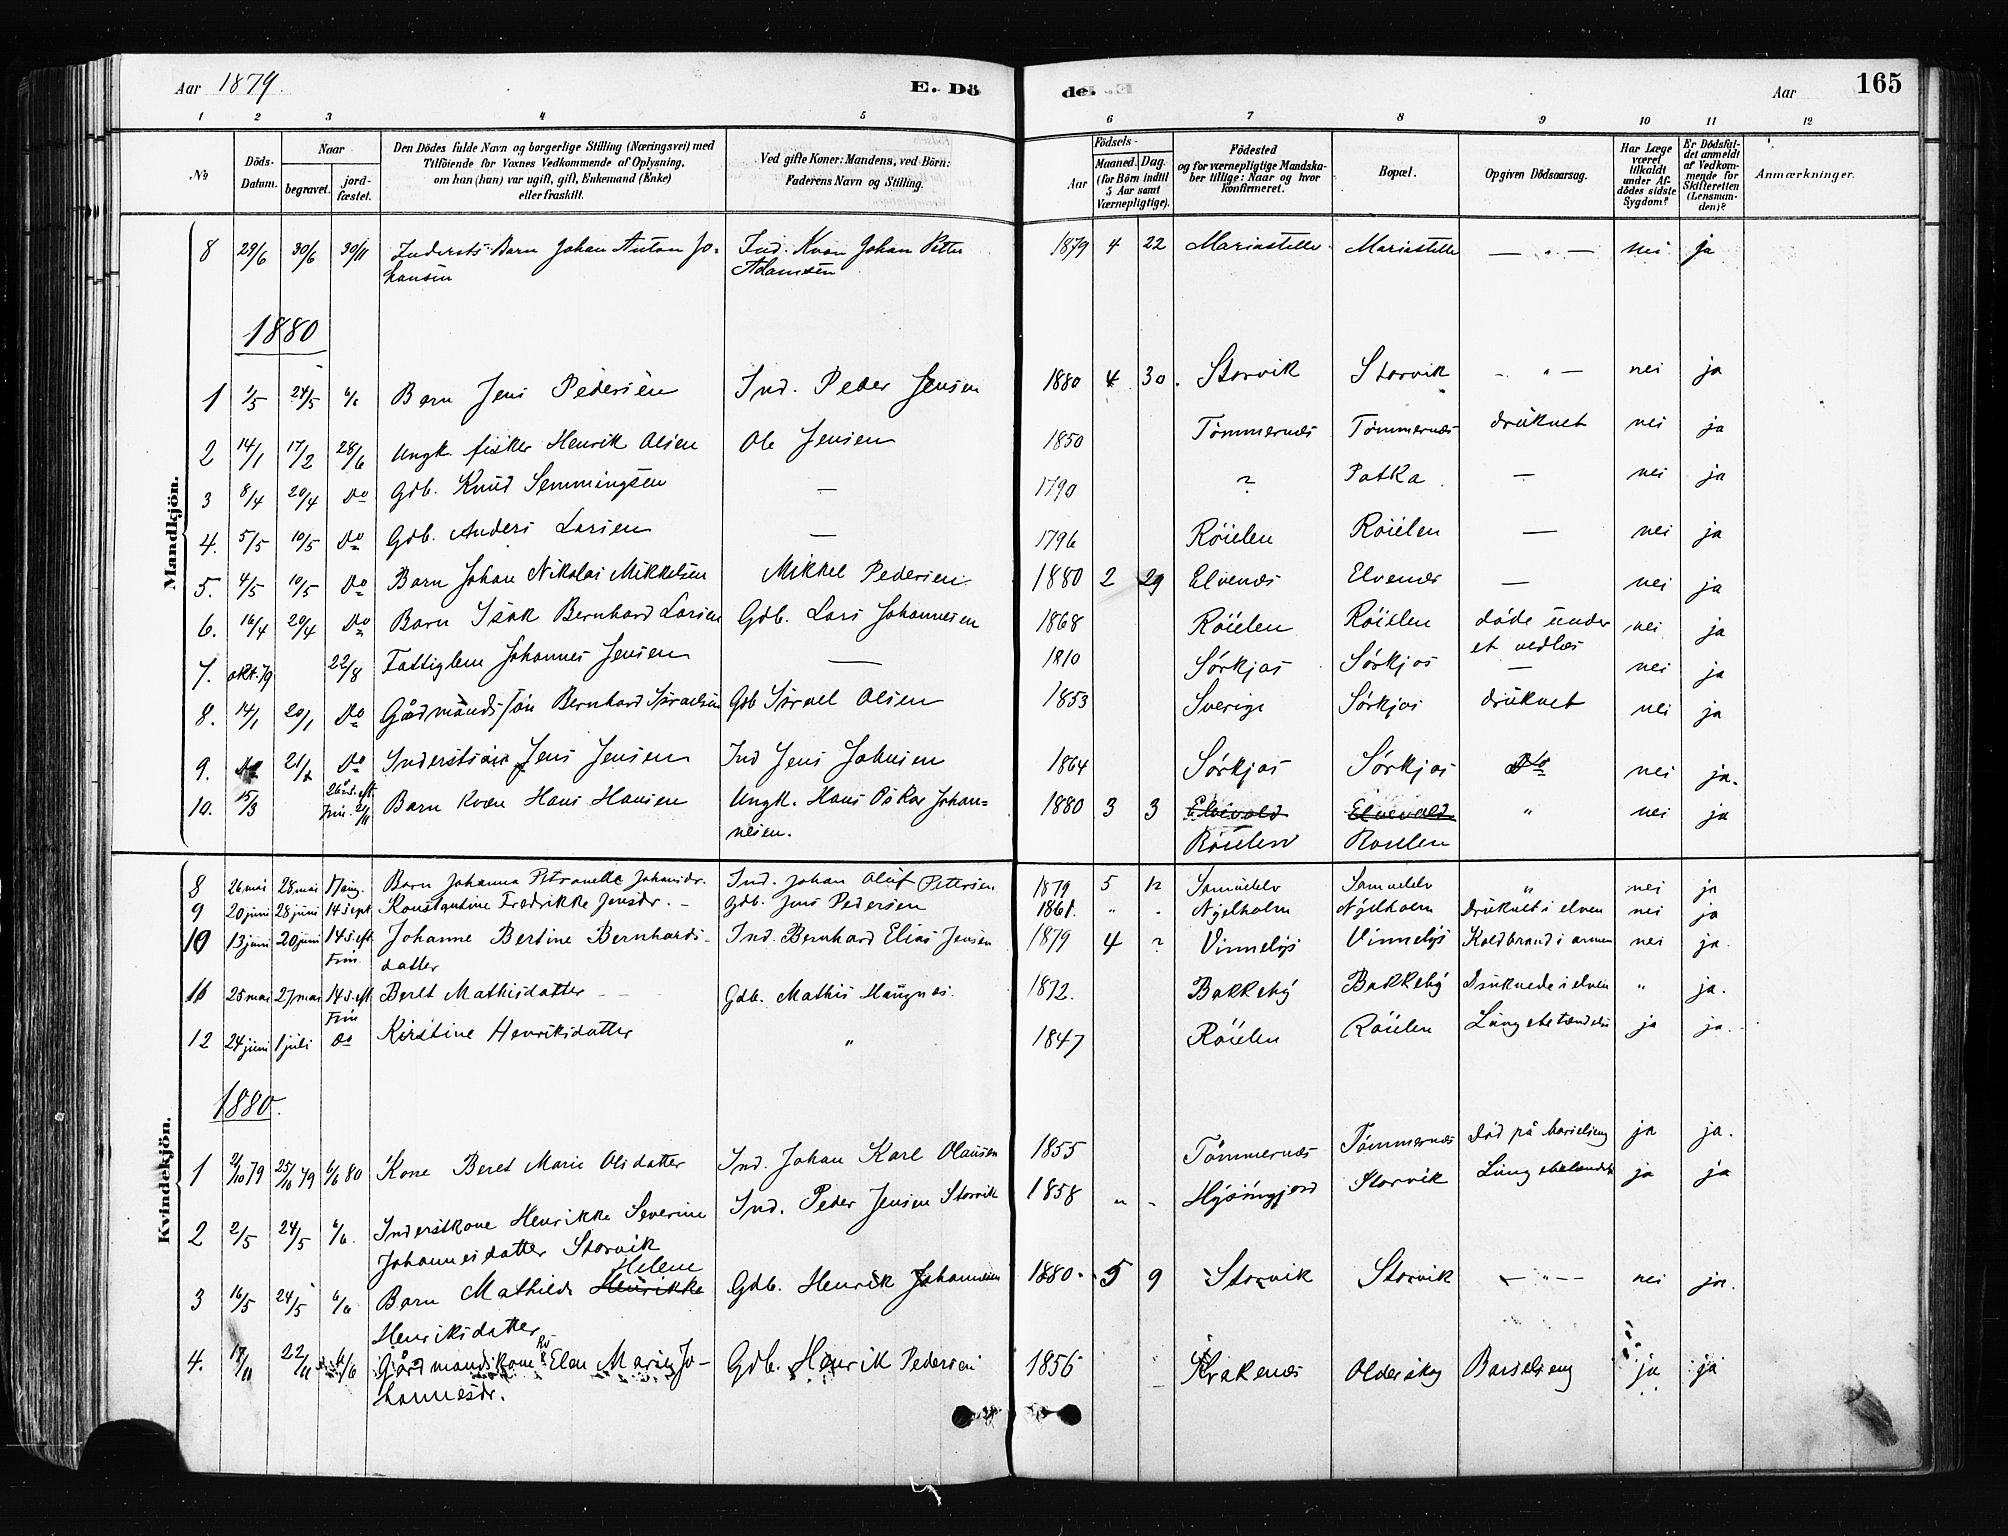 Aar 1879. E. Dö de. Aar 165
1 2 3 4 5 6 7 8 9 10 11 12
No Döds-Datum. Naar begravet. jord-fæstet. Den Dödes fulde Navn og borgerlige Stilling (Næringsvei) med Tilföiende for Voxnes Vedkommende af Oplysning, om han (hun) var ugift, gift, Enkemand (Enke) eller fraskilt. Ved gifte Koner: Mandens, ved Börn: Faderens Navn og Stilling. Födsels- Aar Maaned. Dag. (for Börn indtil 5 Aar samt Værnepligtige). Födested og for værnepligtige Mandska-ber tillige: Naar og hvor konfirmeret. Bopæl. Opgiven Dödsaarsag. Har Læge været tilkaldt under Af-dödes sidste Sygdom? Er Dödsfal-det anmeldt af Vedkom-mende for Skifteretten (Lensman-den)? Anmærkninger.
Mandkjön.
8 29/6 30/6 30/11 Indersts Barn Johan Anton Jo- Ind. Kvæn Johan Petter 1879 4 22 Mariastelle Mariastelle — " — nei ja
hansen Adamsen
1880
1 1/5 24/5 6/6 Barn Jens Pedersen Ind. Peder Jensen 1880 4 30. Storvik Storvik - " — nei ja
2 14/1 17/2 28/6 Ungk. fisker Henrik Olsen Ole Jensen 1850 Tömmernæs Tömmernæs drüknet nei ja
3 8/4 20/4 Do Gdb. Knud Semmingsen — 1790 ? Potka — nei ja
4. 5/5 10/5 Do Gdb. Anders Larsen — 1796 Röielen Röielen — nei ja
5. 4/5 10/5 Do Barn Johan Nikolai Mikkelsen Mikkel Pedersen 1880 2 29 Elvenæs Elvenæs — nei ja
6. 16/4 20/4 Do Barn Isak Bernhard Larsen Gdb. Lars Johannesen 1868 Röielen Röielen döde ünder nei ja
et vedlæs
7. okt. 79 22/8 Fattiglem Johannes Jensen — 1810 Sörkjos Sörkjos — nei ja
8. 14/1 20/1 Do Gårdmandssön Bernhard Israelsen Gdb Israel Olsen 1853 Sverige Sörkjos drüknet nei ja
9. Do 21/2 Do Jens Jensen Ind Jens Johnsen 1864 Sörkjos Sörkjos Dto nei ja.
10. 15/3 26 s. eft. Trin. 21/11 Barn Kvæn Hans Hansen Ungk. Hans Oskar Johan- 1880 3 3 Elvevold Elvevold " nei ja
nesen. Röielen Röielen
Kvindekjön.
8 26 mai 28 mai 17 aug. Barn Johanna Petronelle Johansdr. Ind. Johan Olüf Pettersen 1879 5 12 Samüelelv Samuelelv " nei ja
9 20 juni 28 juni 14 sept Konstantine Fredrikke Jensdr. - Gdb. Jens Pedersen 1861. " - Nyelholm Nyelholm Drüknet i elven nei ja
10 13 juni 20 juni 14 s. eft Trin. Johanne Bertine Bernhards- Ind. Bernhard Elias Jensen 1879 4 ? Vinnelys Vinnelys Koldbrand i armen nei ja.
datter
11 25 mai 27 mai 14 s. eft Trin Beret Mathisdatter Gdb. Mathis Haugnes. 1872. Bakkeby Bakkeby Drüknede i elven " ja.
12 24 juni 1 juli Do Kirstine Henriksdatter " 1847 Röielen Röielen Lüngebetændelse ja ja.
1880.
1 21/10 79 25/10 79 6/6 80 Kone Beret Marie Olsdatter Ind. Johan Karl Olausen 1855 Tömmernæs Tömmernæs Död på barselseng ja ja.
2 2/5 24/5 6/6. Inderstkone Henrikke Severine Ind. Peder Jensen Storvik 1858 " - Storvik Lüngebetændelse ja ja
Johannesdatter Storvik
3 16/5 24/5 6/6 Barn Mathilde Henrikke Helene Gdb. Henrik Johannesen 1880. 5 9 Storvik Storvik — " — nei ja.
Henriksdatter
4. 17/11 22/11 6/6 Gårdmandskone Elen Marie Jo- Gdb. Henrik Pedersen 1856 Kråkenæs Olderskog Barselseng ja ja
hannesdr.